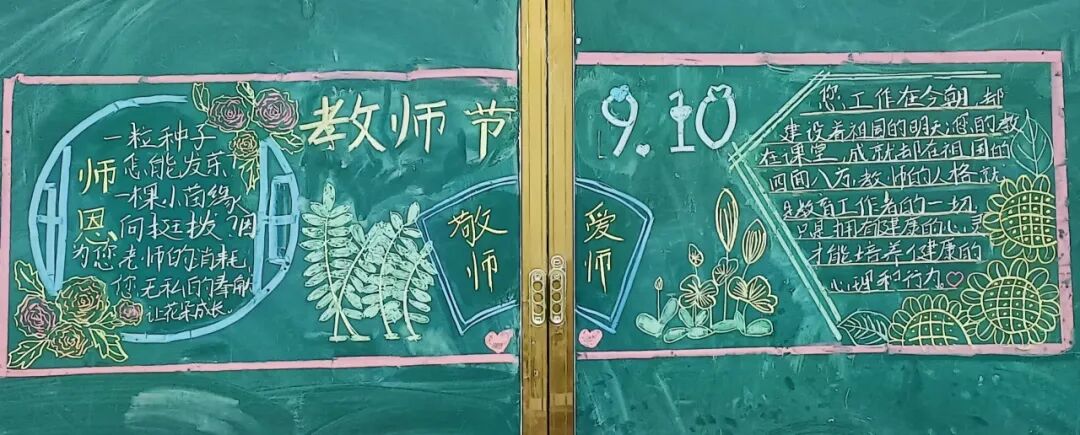 教师节
9.10
师恩
一粒种子
您能发芽
一棵小苗缘
向挺拔
为您老师的消耗
您无私的奉献
让花朵成长。
敬师
爱师
您工作在今朝,却
建设着祖国的明天;您的教
在课堂,成就却在祖国的
四面八方。教师的人格就
是教育工作者的一切,
只是拥有健康的心灵
才能培养健康的
心理和行为。